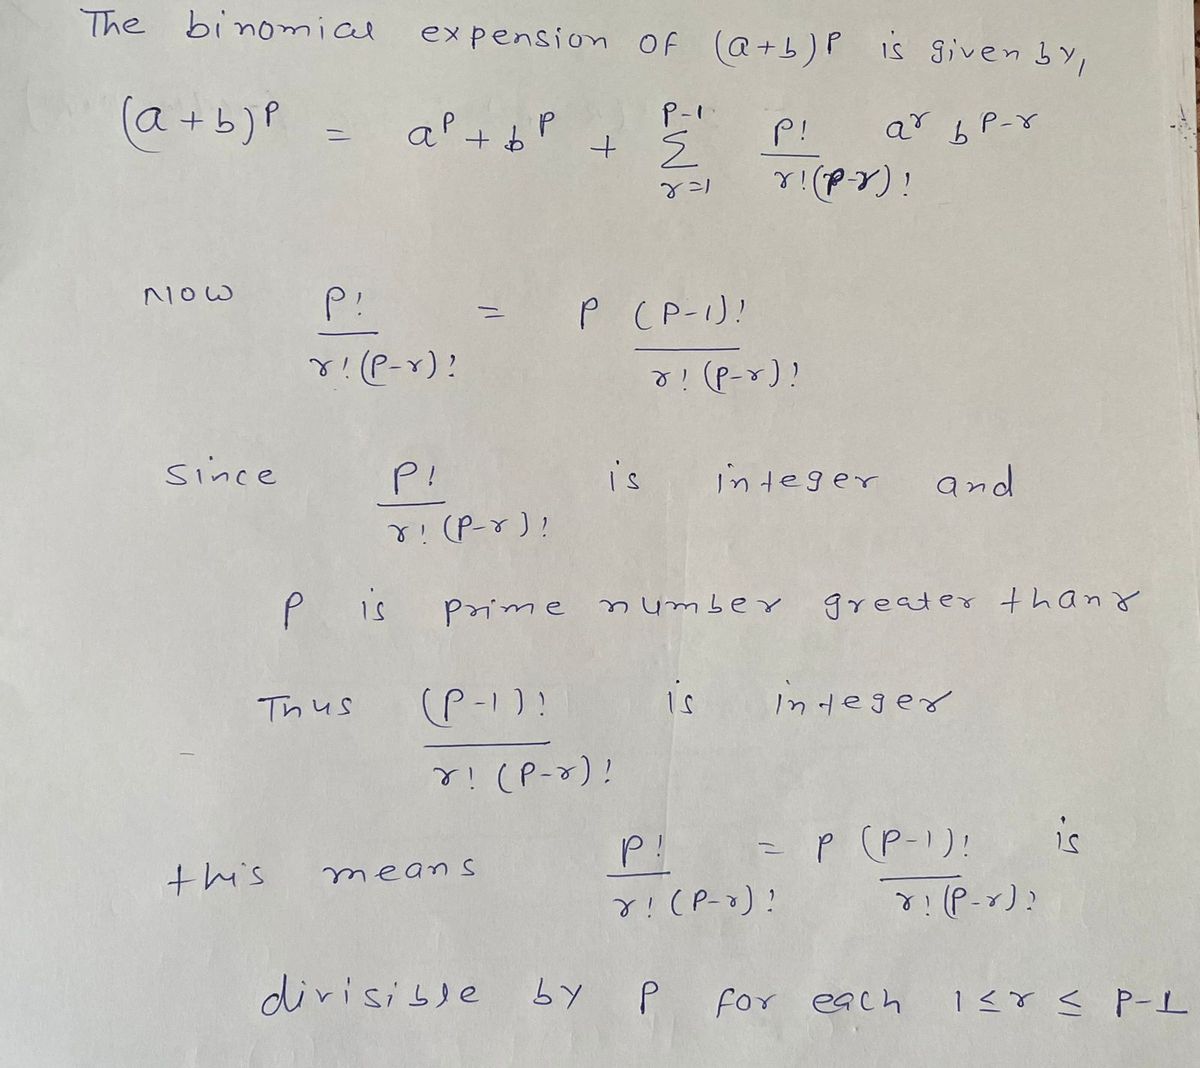 The binomial expension of (a+b)^p is given by,
(a+b)^p = a^p + b^p + \sum_{r=1}^{p-1} \frac{p!}{r!(p-r)!} a^r b^{p-r}
Now \frac{p!}{r!(p-r)!} = p \frac{(p-1)!}{r!(p-r)!}
Since \frac{p!}{r!(p-r)!} is integer and
p is prime number greater than r
Thus \frac{(p-1)!}{r!(p-r)!} is integer
this means \frac{p!}{r!(p-r)!} = p \frac{(p-1)!}{r!(p-r)!} is
divisible by p for each 1 ≤ r ≤ p-1